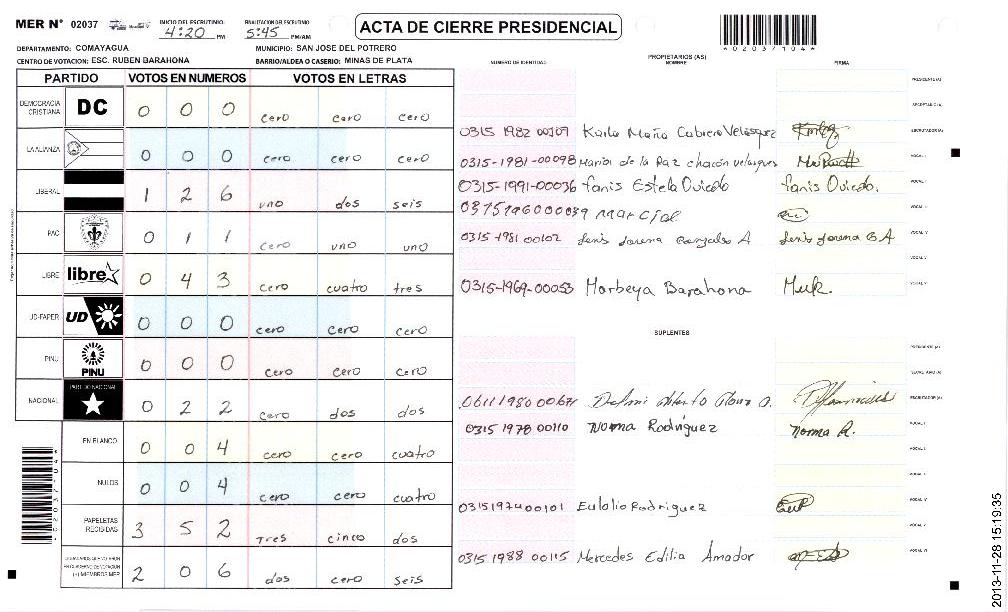 MER N° 02037
INICIO DEL ESCRUTINIO
4:20 PM
FINALIZACION DEL ESCRUTINIO
5:45 PM/AM
ACTA DE CIERRE PRESIDENCIAL
*02037104*
DEPARTAMENTO: COMAYAGUA
MUNICIPIO: SAN JOSE DEL POTRERO
CENTRO DE VOTACION: ESC. RUBEN BARAHONA
BARRIO/ALDEA O CASERIO: MINAS DE PLATA
PARTIDO VOTOS EN NUMEROS VOTOS EN LETRAS
DEMOCRACIA CRISTIANA DC 0 0 0 cero cero cero
LA ALIANZA 0 0 0 cero cero cero
LIBERAL 1 2 6 uno dos seis
PAC 0 1 1 cero uno uno
LIBRE libre 0 4 3 cero cuatro tres
UD-FAPER UD 0 0 0 cero cero cero
PINU PINU 0 0 0 cero cero cero
NACIONAL PARTIDO NACIONAL 0 2 2 cero dos dos
EN BLANCO 0 0 4 cero cero cuatro
NULOS 0 0 4 cero cero cuatro
PAPELETAS RECIBIDAS 3 5 2 Tres cinco dos
(+) MIEMBROS MER 2 0 6 dos cero seis
NUMERO DE IDENTIDAD
PROPIETARIOS (AS)
NOMBRE
FIRMA
PRESIDENTE (A)
SECRETARIO (A)
0315 1982 00107 Karla María Cabrera Velásquez ESCRUTADOR (A)
0315-1981-00098 Maria de la Paz chacón velasques VOCAL I
0315-1991-00036 Fanis Estela Oviedo Fanis Oviedo.
marcial
0315-1981 00102 Lenis Lorena Gonzales A Lenis Lorena G A VOCAL IV
VOCAL V
0315-1969-00053 Marbeya Barahona
SUPLENTES
PRESIDENTE (A)
SECRETARIO (A)
0611 1980 00671 ESCRUTADOR (A)
0315 1978 00110 Norma Rodriguez Norma R. VOCAL I
VOCAL II
VOCAL III
0315197400101 Eulalio Rodriguez VOCAL IV
VOCAL V
0315 1988 00115 Mercedes Edilia Amador VOCAL VI
2013-11-28 15:19:35